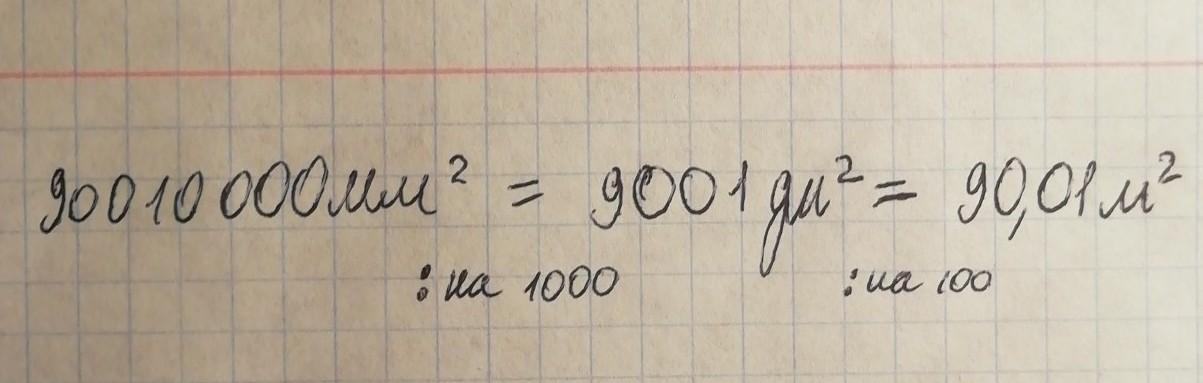 90010000мм² = 9001дм² = 90,01м²
: на 1000 : на 100